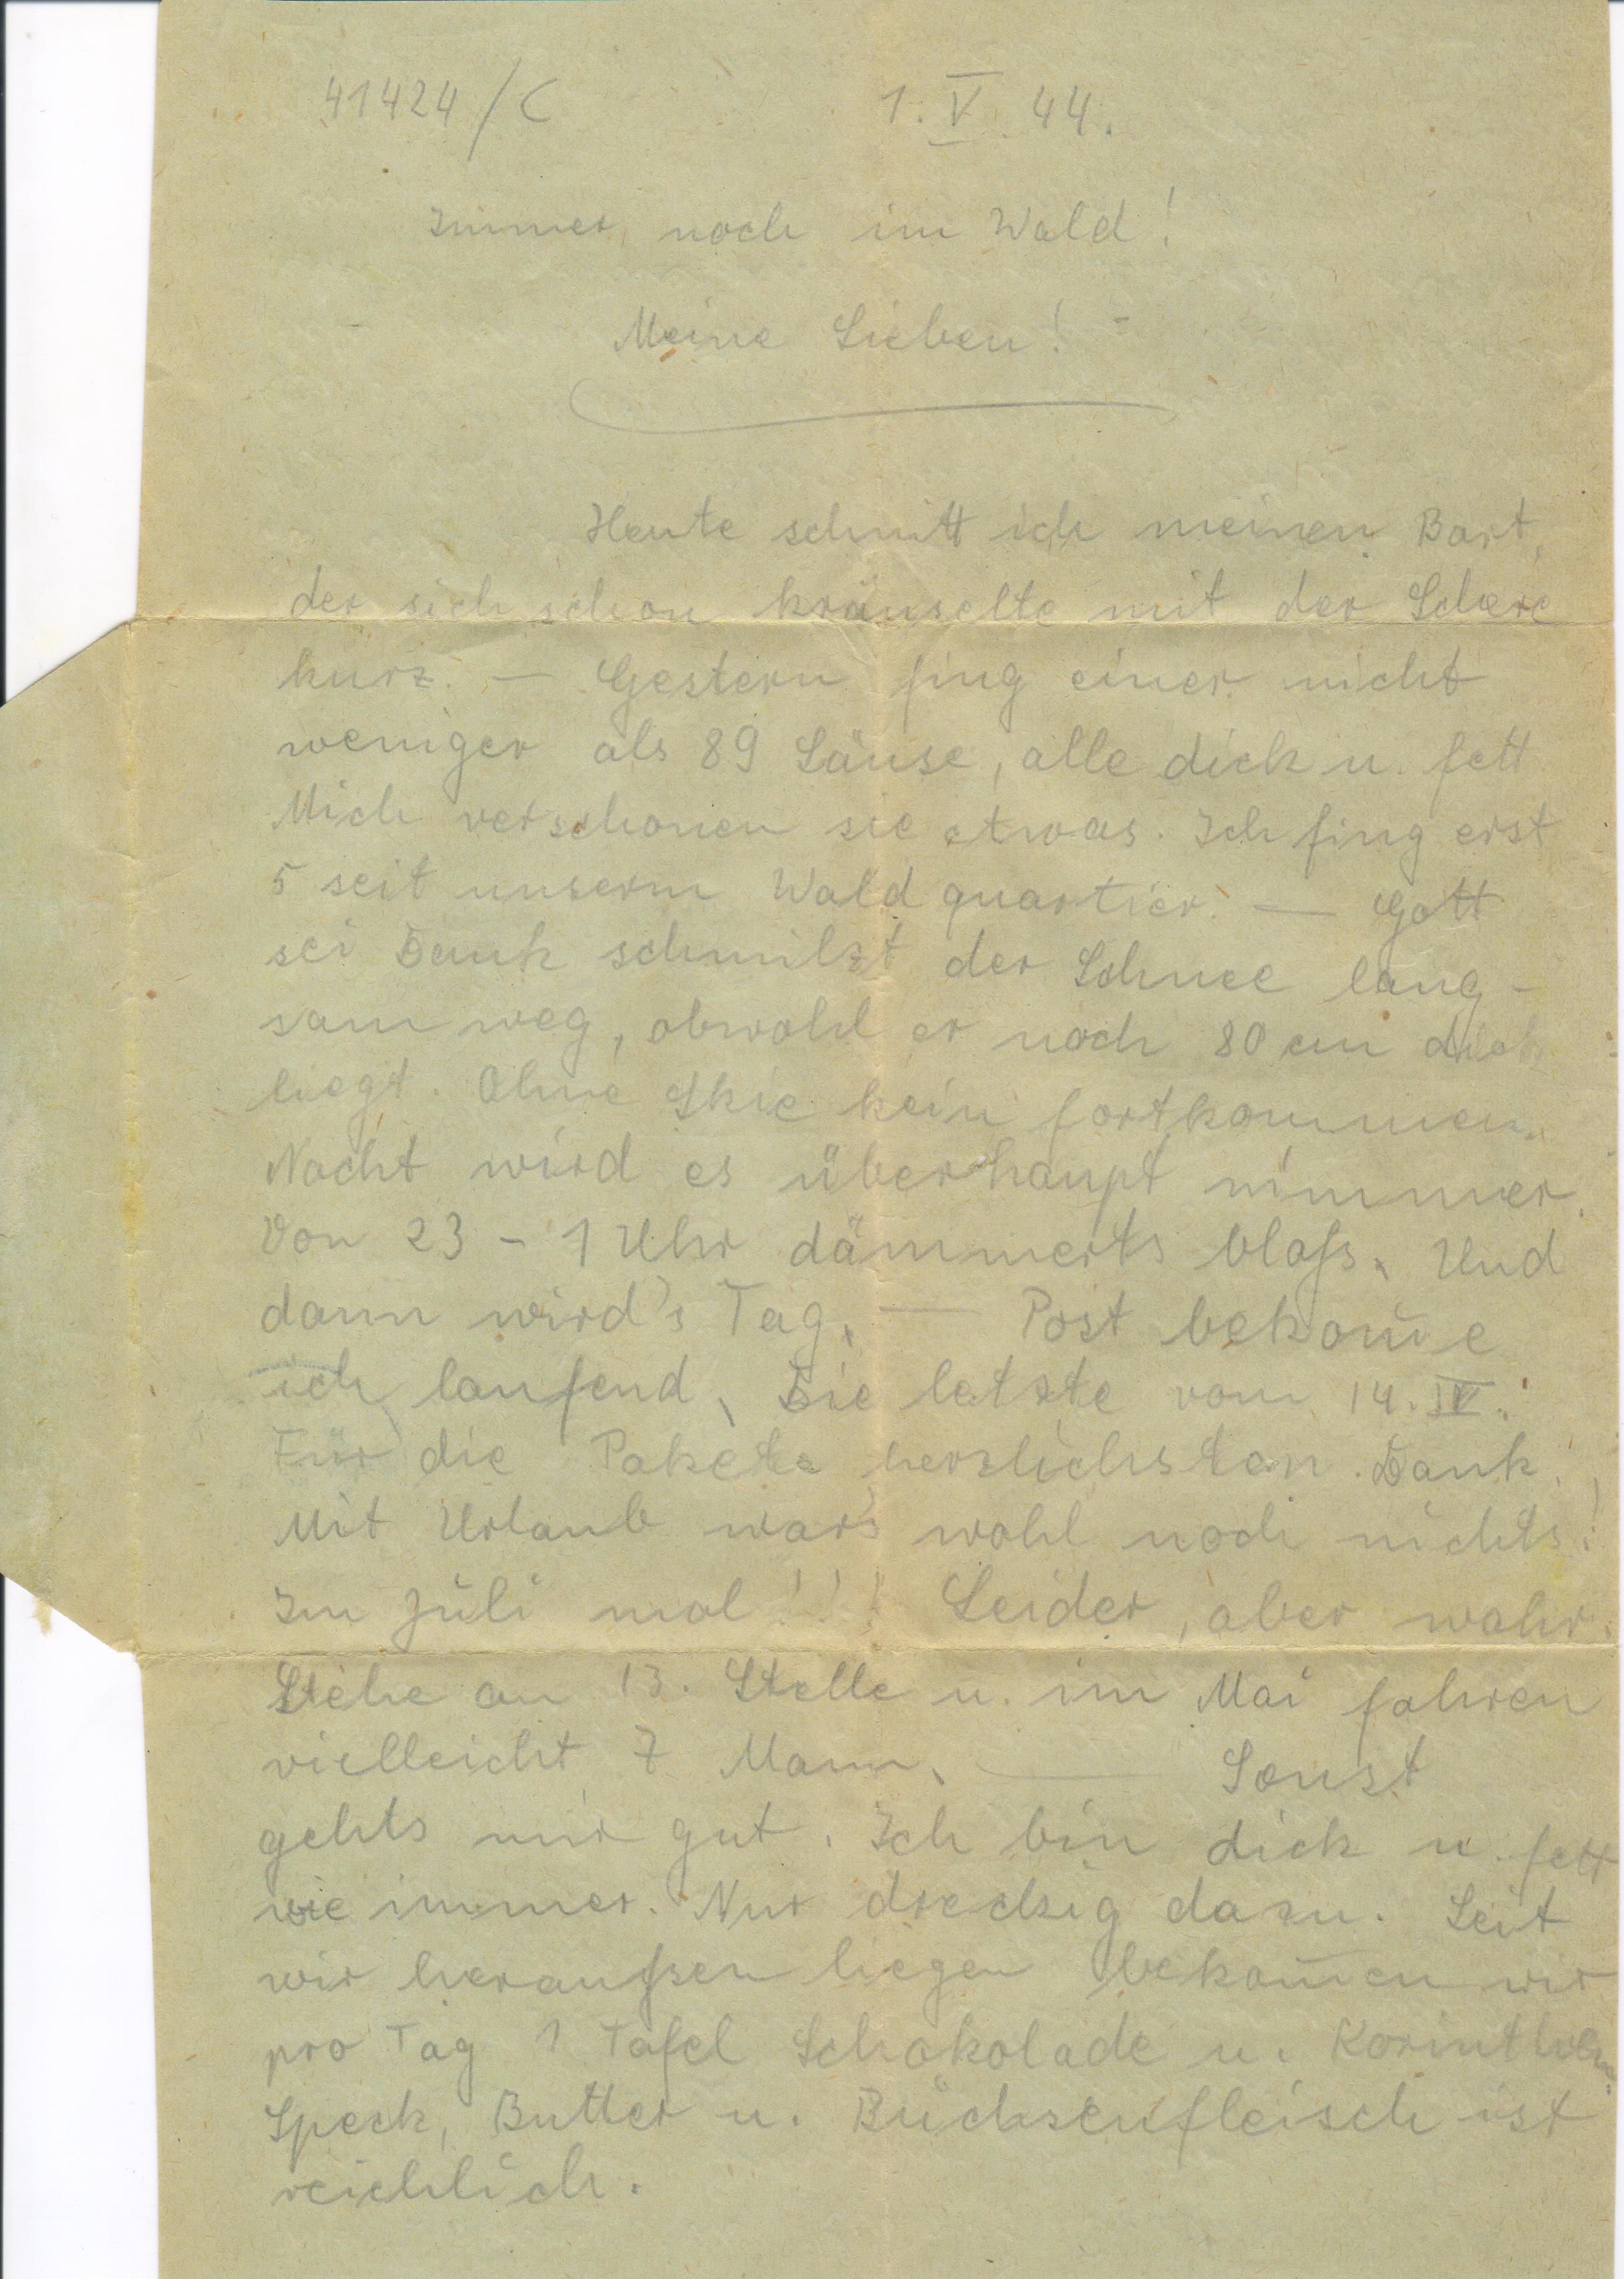 41424/C 1. V. 44.
Immer noch im Wald!
Meine Lieben!
Heute schnitt ich meinen Bart,
der sich schon kräuselte mit der Schere
kurz. — Gestern fing einer nicht
weniger als 89 Läuse, alle dick u. fett
Mich verschonen sie etwas. Ich fing erst
5 seit unserm Waldquartier. — Gott
sei Dank schmilzt der Schnee lang-
sam weg, obwohl er noch 80 cm dick
liegt. Ohne Skie kein fortkommen.
Nacht wird es überhaupt nimmer.
Von 23 - 1 Uhr dämmerts blaß. Und
dann wird's Tag. — Post bekom̄e
ich laufend. Die letzte vom 14. IV.
Für die Pakete herzlichsten Dank.
Mit Urlaub wars wohl noch nichts!
Im Juli mal!!! Leider, aber wahr.
Stehe an 13. Stelle u. im Mai fahren
vielleicht 7 Mann. — Sonst
gehts mir gut. Ich bin dick u. fett
wie immer. Nur dreckig dazu. Seit
wir heraußen liegen bekom̄en wir
pro Tag 1 Tafel Schokolade u. Korinthen.
Speck, Butter u. Büchsenfleisch ist
reichlich.